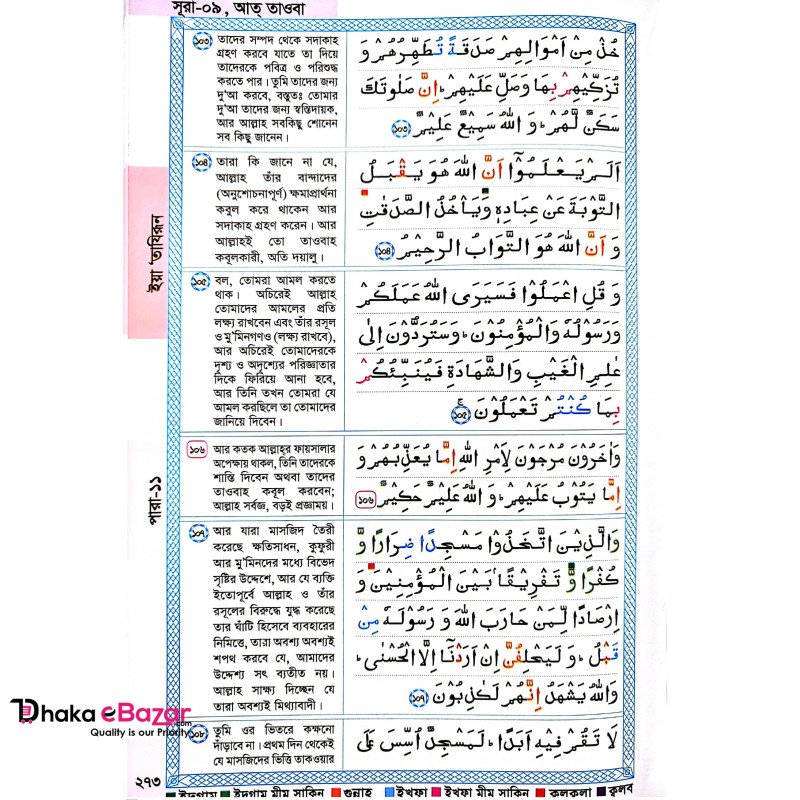 সূরা-০৯, আত্ তাওবা
১০৩ তাদের সম্পদ থেকে সদাকাহ
গ্রহণ করবে যাতে তা দিয়ে
তাদেরকে পবিত্র ও পরিশুদ্ধ
করতে পার। তুমি তাদের জন্য
দু‘আ করবে, বস্তুতঃ তোমার
দু‘আ তাদের জন্য স্বস্তিদায়ক,
আর আল্লাহ সবকিছু শোনেন
সব কিছু জানেন।
خُذْ مِنْ اَمْوَالِهِمْ صَدَقَةً تُطَهِّرُهُمْ وَ
تُزَكِّيْهِمْ بِهَا وَصَلِّ عَلَيْهِمْ ؕ اِنَّ صَلٰوتَكَ
سَكَنٌ لَّهُمْ ؕ وَ اللّٰهُ سَمِيْعٌ عَلِيْمٌ ১০৩
১০৪ তারা কি জানে না যে,
আল্লাহ তাঁর বান্দাদের
(অনুশোচনাপূর্ণ) ক্ষমাপ্রার্থনা
কবুল করে থাকেন আর
সদাকাহ গ্রহণ করেন। আর
আল্লাহই তো তাওবাহ
কবূলকারী, অতি দয়ালু।
اَلَمْ يَعْلَمُوْۤا اَنَّ اللّٰهَ هُوَ يَقْبَلُ
التَّوْبَةَ عَنْ عِبَادِهٖ وَيَاْخُذُ الصَّدَقٰتِ
وَ اَنَّ اللّٰهَ هُوَ التَّوَّابُ الرَّحِيْمُ ১০৪
১০৫ বল, তোমরা আমল করতে
থাক। অচিরেই আল্লাহ
তোমাদের আমলের প্রতি
লক্ষ্য রাখবেন এবং তাঁর রসূল
ও মু’মিনগণও (লক্ষ্য রাখবে),
আর অচিরেই তোমাদেরকে
দৃশ্য ও অদৃশ্যের পরিজ্ঞাতার
দিকে ফিরিয়ে আনা হবে,
আর তিনি তখন তোমরা যে
আমল করছিলে তা তোমাদের
জানিয়ে দিবেন।
وَ قُلِ اعْمَلُوْا فَسَيَرَى اللّٰهُ عَمَلَكُمْ
وَرَسُوْلُهٗ وَالْمُؤْمِنُوْنَ ؕ وَسَتُرَدُّوْنَ اِلٰى
عٰلِمِ الْغَيْبِ وَالشَّهَادَةِ فَيُنَبِّئُكُمْ
بِمَا كُنْتُمْ تَعْمَلُوْنَ ۚ ১০৫
১০৬ আর কতক আল্লাহ্‌র ফায়সালার
অপেক্ষায় থাকল, তিনি তাদেরকে
শাস্তি দিবেন অথবা তাদের
তাওবাহ কবূল করবেন;
আল্লাহ সর্বজ্ঞ, বড়ই প্রজ্ঞাময়।
وَاٰخَرُوْنَ مُرْجَوْنَ لِاَمْرِ اللّٰهِ اِمَّا يُعَذِّبُهُمْ وَ
اِمَّا يَتُوْبُ عَلَيْهِمْ ؕ وَ اللّٰهُ عَلِيْمٌ حَكِيْمٌ ১০৬
১০৭ আর যারা মাসজিদ তৈরী
করেছে ক্ষতিসাধন, কুফুরী
আর মু’মিনদের মধ্যে বিভেদ
সৃষ্টির উদ্দেশে, আর যে ব্যক্তি
ইতোপূর্বে আল্লাহ ও তাঁর
রসূলের বিরুদ্ধে যুদ্ধ করেছে
তার ঘাঁটি হিসেবে ব্যবহারের
নিমিত্তে, তারা অবশ্য অবশ্যই
শপথ করবে যে, আমাদের
উদ্দেশ্য সৎ ব্যতীত নয়।
আল্লাহ সাক্ষ্য দিচ্ছেন যে
তারা অবশ্যই মিথ্যাবাদী।
وَالَّذِيْنَ اتَّخَذُوْا مَسْجِدًا ضِرَارًا وَّ
كُفْرًا وَّ تَفْرِيْقًۢا بَيْنَ الْمُؤْمِنِيْنَ وَ
اِرْصَادًا لِّمَنْ حَارَبَ اللّٰهَ وَ رَسُوْلَهٗ مِنْ
قَبْلُ ؕ وَ لَيَحْلِفُنَّ اِنْ اَرَدْنَاۤ اِلَّا الْحُسْنٰى ؕ
وَاللّٰهُ يَشْهَدُ اِنَّهُمْ لَكٰذِبُوْنَ ১০৭
১০৮ তুমি ওর ভিতরে কক্ষনো
দাঁড়াবে না। প্রথম দিন থেকেই
যে মাসজিদের ভিত্তি তাকওয়ার
لَا تَقُمْ فِيْهِ اَبَدًا ؕ لَمَسْجِدٌ اُسِّسَ عَلَى
ইয়া ‘তাযিরূন
পারা-১১
Dhaka eBazar.com
Quality is our Priority
২৭৩
ইদগাম ইদগাম মীম সাকিন গুন্নাহ ইখফা ইখফা মীম সাকিন কলকলা ক্বলব